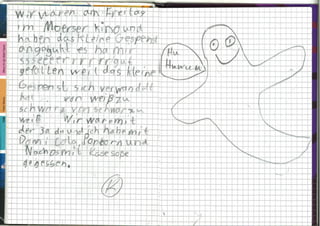 Wir waren am Freitag
im Moerser Kino und
haben das kleine Gespenst
angegukt es ha mir
ssseeerrrrrrgut
gefallen weil das kleine
Gespenst sich verwandelt
hat von weiß zu
schwarz von schwarz zu
weiß Wir waren mit
der 3a da und ich habe mit
Cola, Popcorn und
Nachos mit Käsesoße
gegessen.
Hu
Huuuuu
K